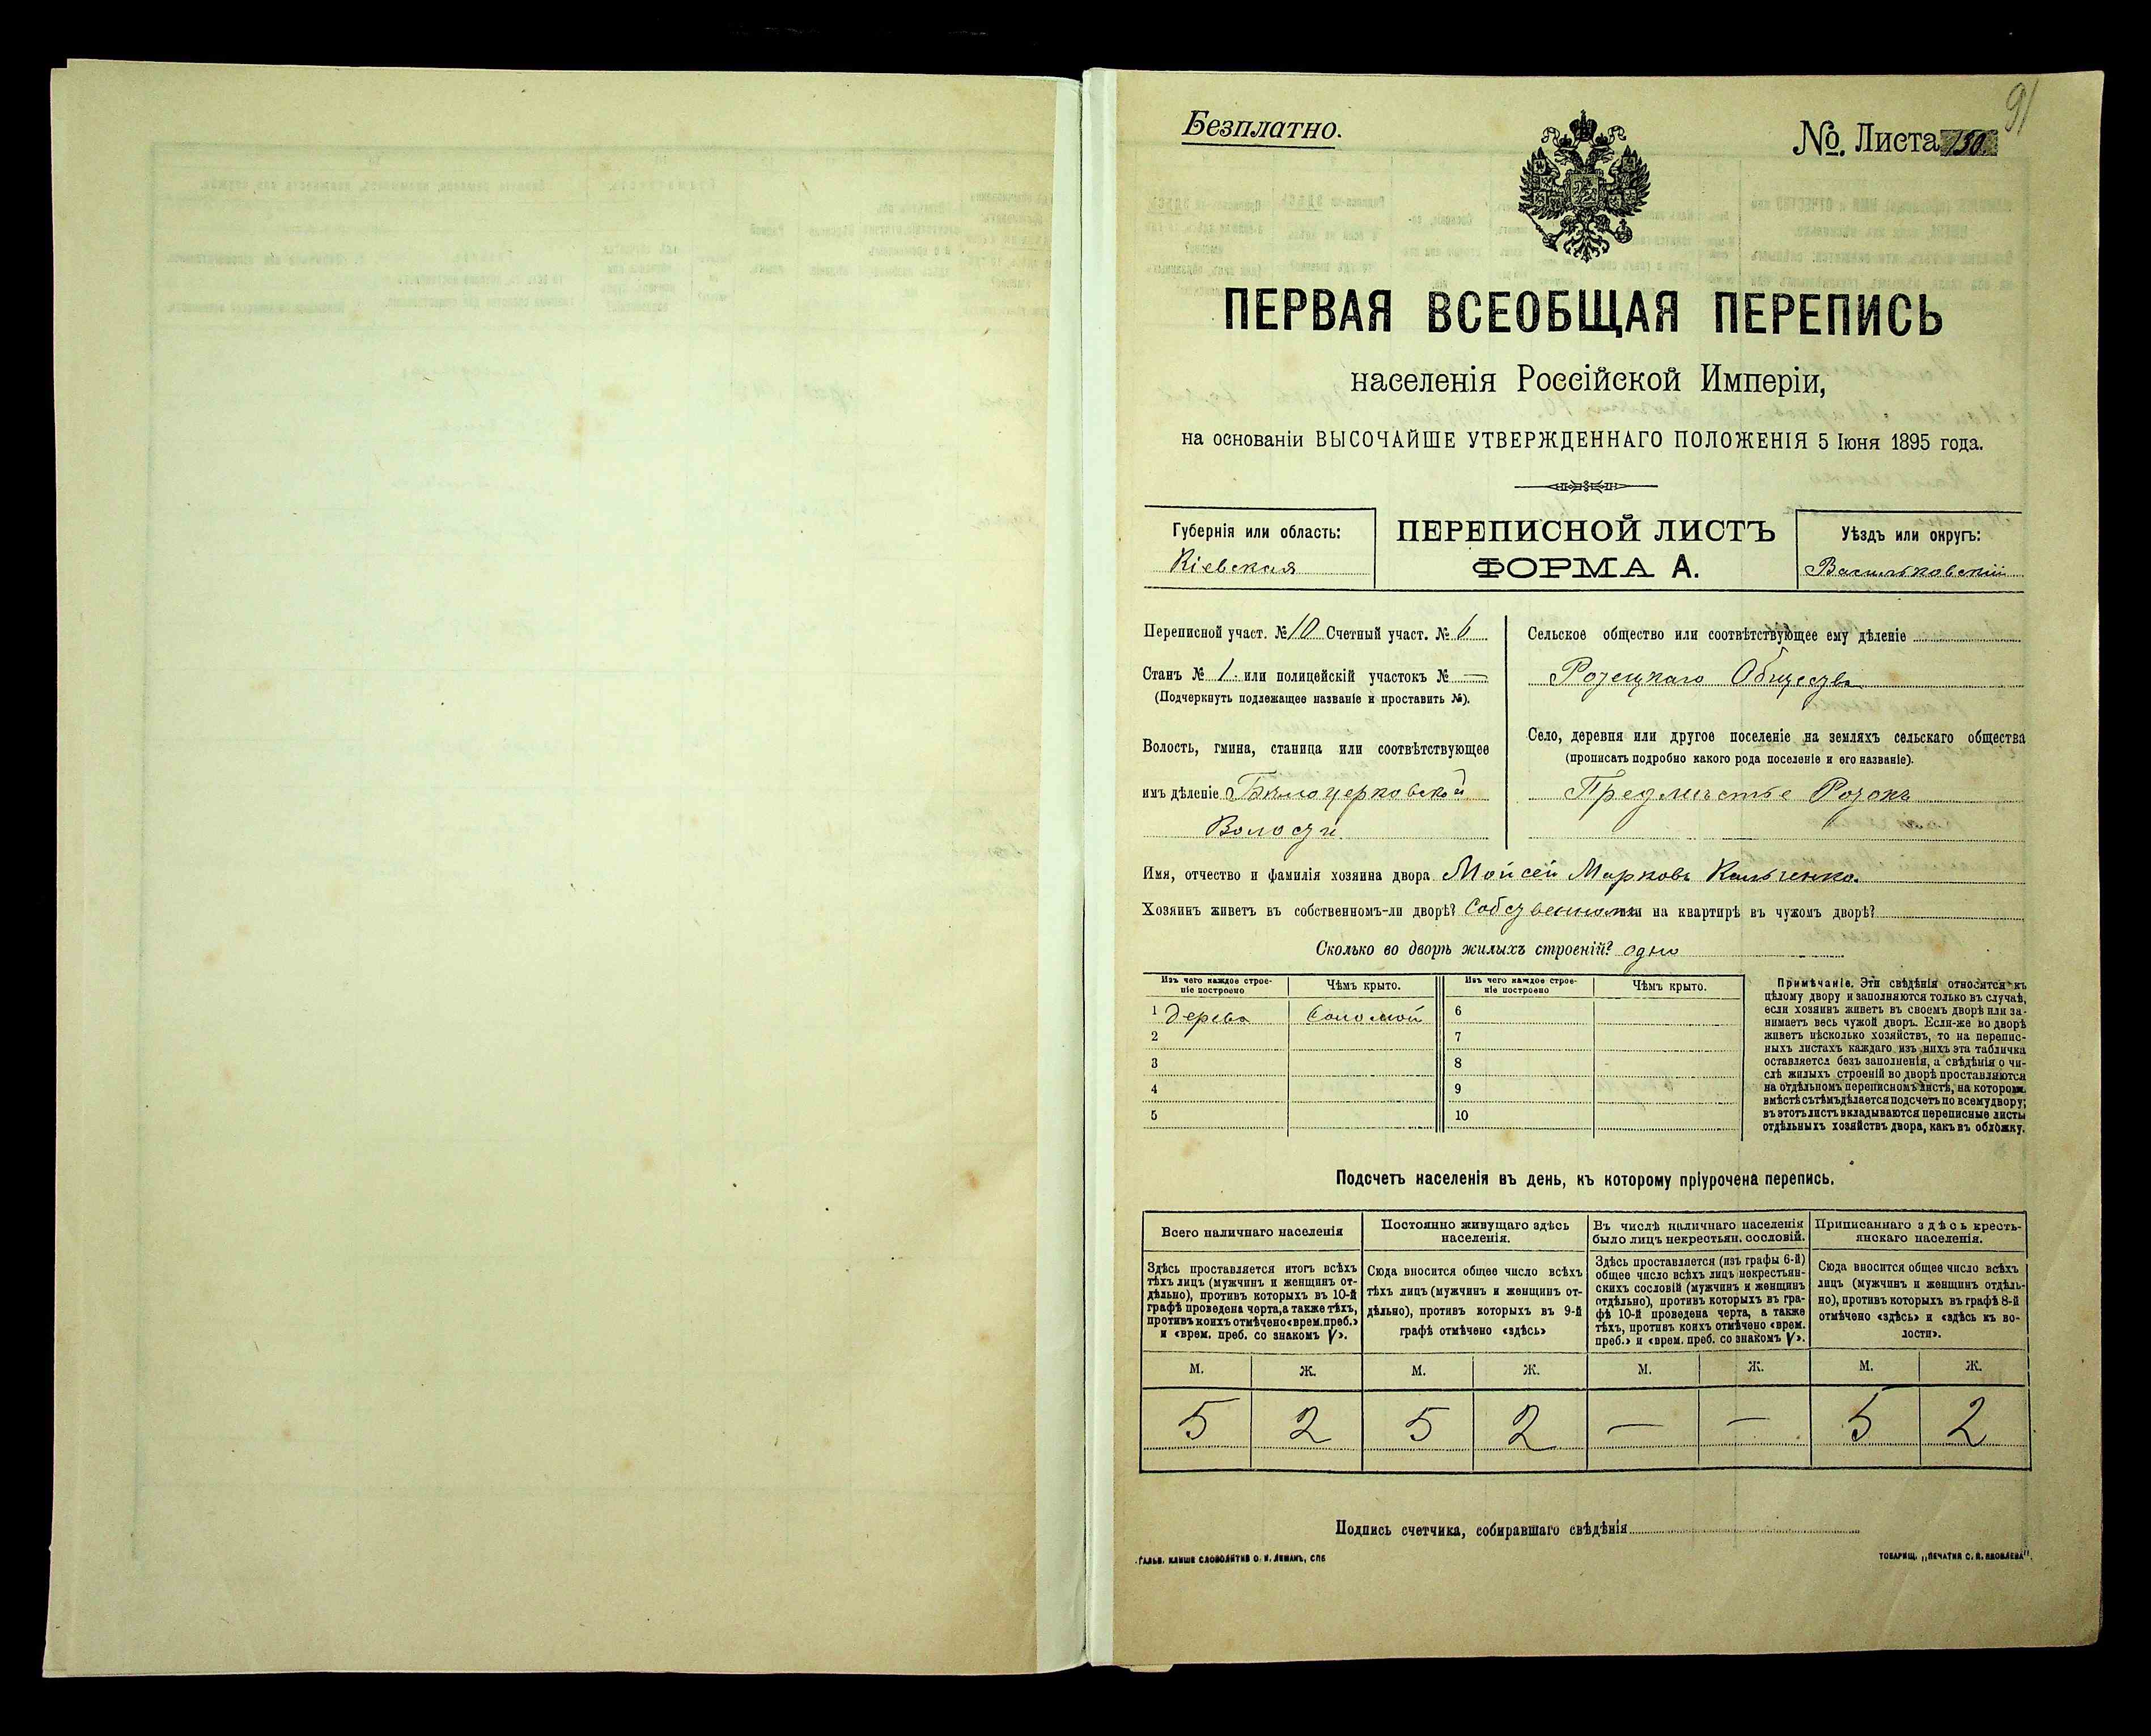 91
Безплатно.
№. Листа 130.
ПЕРВАЯ ВСЕОБЩАЯ ПЕРЕПИСЬ
населенія Россійской Имперіи,
на основаніи ВЫСОЧАЙШЕ УТВЕРЖДЕННАГО ПОЛОЖЕНІЯ 5 Іюня 1895 года.
Губернія или область:
Кіевская
ПЕРЕПИСНОЙ ЛИСТЪ
ФОРМА А.
Уѣздъ или округъ:
Васильковскій
Переписной участ. № 10 Счетный участ. № 6
Станъ № 1. или полицейскій участокъ № —
(Подчеркнуть подлежащее названіе и проставить №).
Волость, гмина, станица или соотвѣтствующее
имъ дѣленіе Бѣлоцерковской
Волости.
Сельское общество или соотвѣтствующее ему дѣленіе
Ротецкаго Общества
Село, деревня или другое поселеніе на земляхъ сельскаго общества
(прописать подробно какого рода поселеніе и его названіе).
Предмѣстье Ротокъ
Имя, отчество и фамилія хозяина двора Мойсей Марковъ Кальченко.
Хозяинъ живетъ въ собственномъ-ли дворѣ? Собственномъ или на квартирѣ въ чужомъ дворѣ?
Сколько во дворѣ жилыхъ строеній? одно
Изъ чего каждое строеніе построено
Чѣмъ крыто.
Изъ чего каждое строеніе построено
Чѣмъ крыто.
1 Дерева Соломой 6
2 7
3 8
4 9
5 10
Примѣчаніе. Эти свѣдѣнія относятся къ
цѣлому двору и заполняются только въ случаѣ,
если хозяинъ живетъ въ своемъ дворѣ или за-
нимаетъ весь чужой дворъ. Если-же во дворѣ
живетъ нѣсколько хозяйствъ, то на перепис-
ныхъ листахъ каждаго изъ нихъ эта табличка
оставляется безъ заполненія, а свѣдѣнія о чи-
слѣ жилыхъ строеній во дворѣ проставляются
на отдѣльномъ переписномъ листѣ, на которомъ
вмѣстѣ съ тѣмъ дѣлается подсчетъ по всему двору;
въ этотъ листъ вкладываются переписные листы
отдѣльныхъ хозяйствъ двора, какъ въ обложку.
Подсчетъ населенія въ день, къ которому пріурочена перепись.
Всего наличнаго населенія
Постоянно живущаго здѣсь
населенія.
Въ числѣ наличнаго населенія
было лицъ некрестьян. сословій.
Приписаннаго здѣсь кресть-
янскаго населенія.
Здѣсь проставляется итогъ всѣхъ
тѣхъ лицъ (мужчинъ и женщинъ от-
дѣльно), противъ которыхъ въ 10-й
графѣ проведена черта, а также тѣхъ,
противъ коихъ отмѣчено «врем. преб.»
и «врем. преб. со знакомъ V».
Сюда вносится общее число всѣхъ
тѣхъ лицъ (мужчинъ и женщинъ от-
дѣльно), противъ которыхъ въ 9-й
графѣ отмѣчено «здѣсь»
Здѣсь проставляется (изъ графы 6-й)
общее число всѣхъ лицъ некрестьян-
скихъ сословій (мужчинъ и женщинъ
отдѣльно), противъ которыхъ въ гра-
фѣ 10-й проведена черта, а также
тѣхъ, противъ коихъ отмѣчено «врем.
преб.» и «врем. преб. со знакомъ V».
Сюда вносится общее число всѣхъ
лицъ (мужчинъ и женщинъ отдѣль-
но), противъ которыхъ въ графѣ 8-й
отмѣчено «здѣсь» и «здѣсь къ во-
лости».
М. Ж. М. Ж. М. Ж. М. Ж.
5 2 5 2 — — 5 2
Подпись счетчика, собиравшаго свѣдѣнія
Гальв. клише словолитни О. И. Леманъ, СПБ
Товарищ. „Печатня С. П. Яковлева".